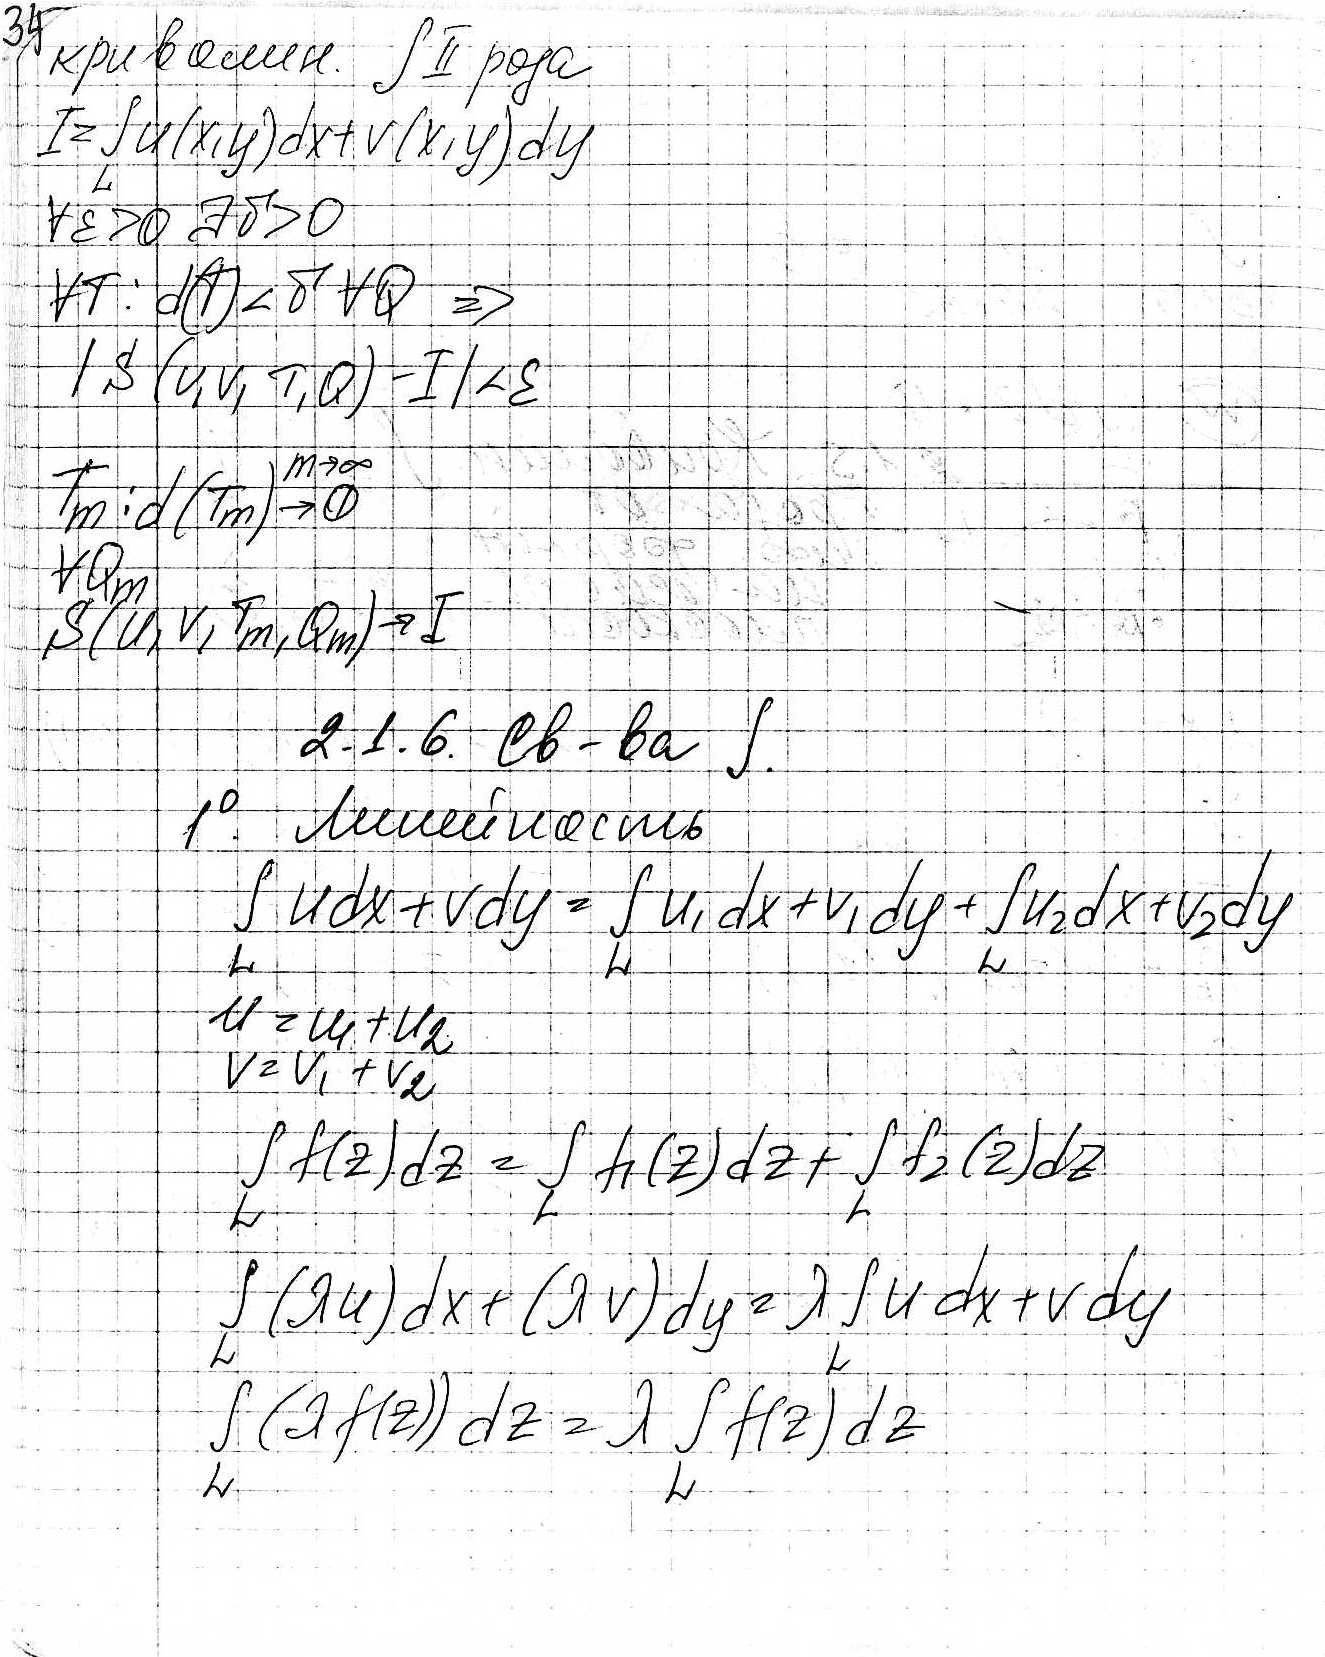 34
криволин. ∫ II рода
I = ∫_L u(x,y)dx + v(x,y)dy
∀ε>0 ∃δ>0
∀T: d(T)<δ ∀Q ⇒
|S(u,v,T,Q) - I|<ε
T_m: d(T_m) →^{m→∞} 0
∀Q_m
S(u, v, T_m, Q_m) → I
2.1.6. Св-ва ∫.
1°. Линейность
∫_L u dx + v dy = ∫_L u₁dx + v₁dy + ∫_L u₂dx + v₂dy
u = u₁ + u₂
v = v₁ + v₂
∫_L f(z)dz = ∫_L f₁(z)dz + ∫_L f₂(z)dz
∫_L (λu)dx + (λv)dy = λ ∫_L u dx + v dy
∫_L (λf(z))dz = λ ∫_L f(z)dz